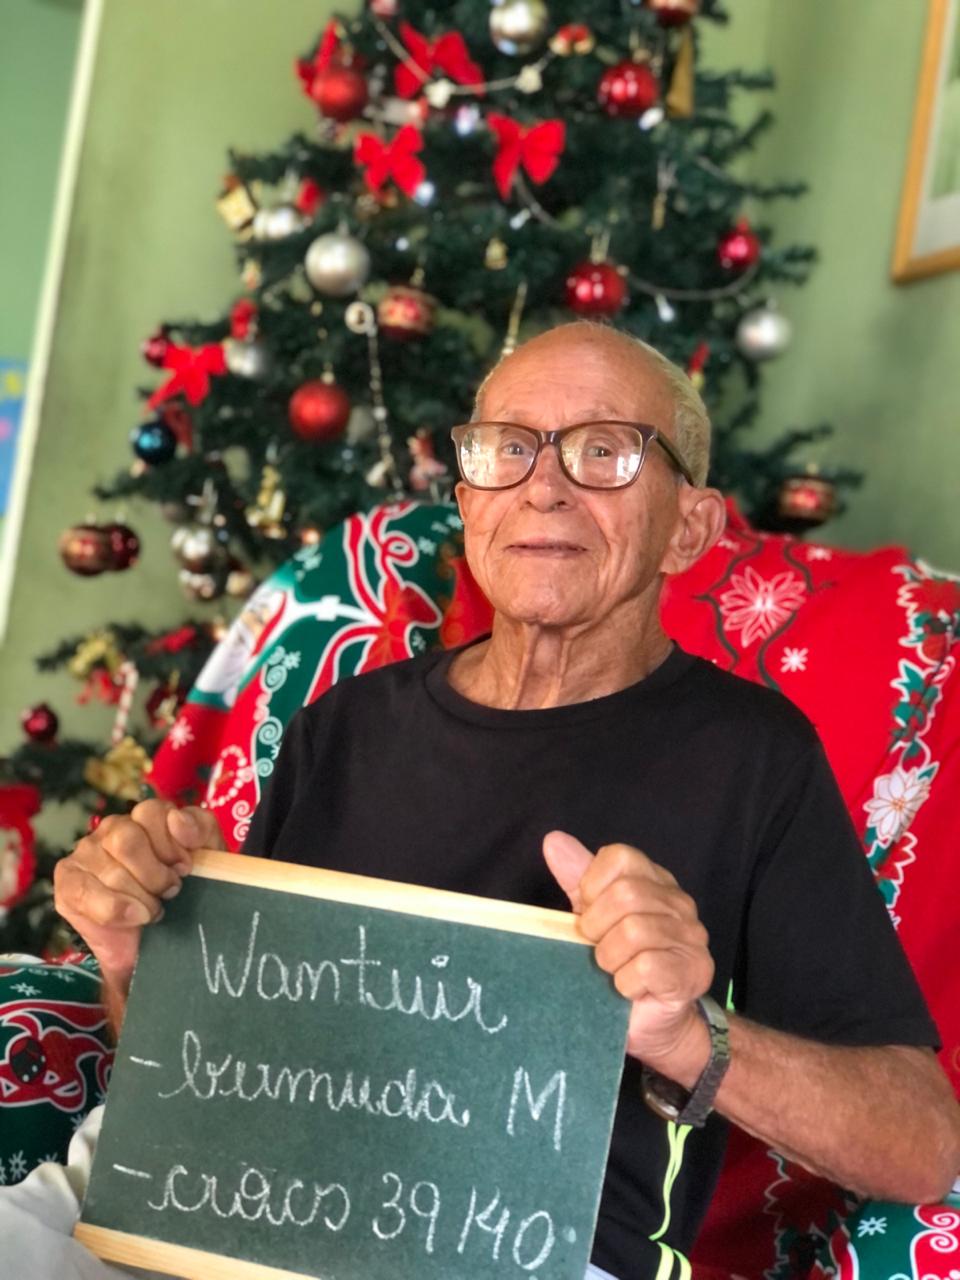 Wantuir
- bermuda M
- crocs 39/40